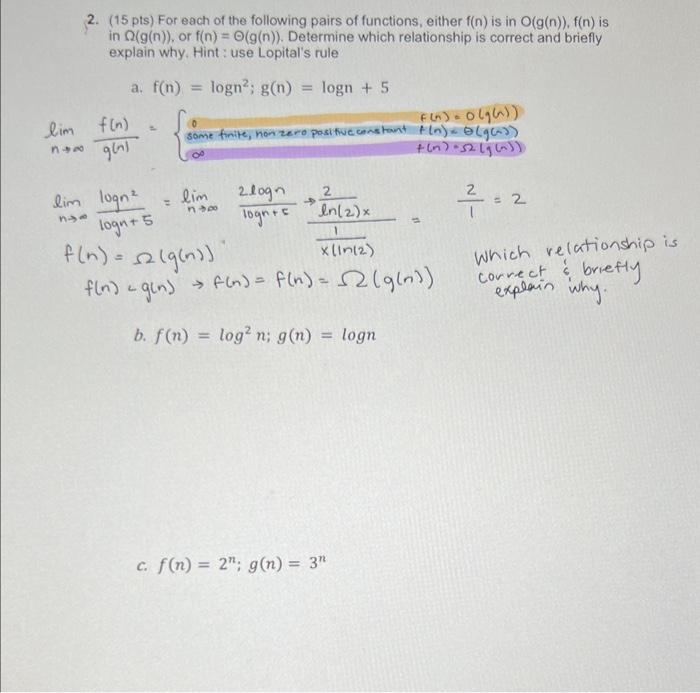 2. (15 pts) For each of the following pairs of functions, either f(n) is in O(g(n)), f(n) is
in Ω(g(n)), or f(n) = Θ(g(n)). Determine which relationship is correct and briefly
explain why. Hint : use Lopital's rule
a. f(n) = logn²; g(n) = logn + 5
lim n→∞ f(n)/g(n) = { 0 f(n) = O(g(n))
some finite, non zero positive constant f(n) = Θ(g(n))
∞ f(n) = Ω(g(n))
lim n→∞ logn²/logn+5 = lim n→∞ 2logn/logn+5 → 2/ln(2)x / 1/x(ln(2) = 2/1 = 2
f(n) = Ω(g(n))
f(n) < g(n) → f(n) = f(n) = Ω(g(n))
which relationship is
correct & briefly
explain why.
b. f(n) = log² n; g(n) = logn
c. f(n) = 2ⁿ; g(n) = 3ⁿ